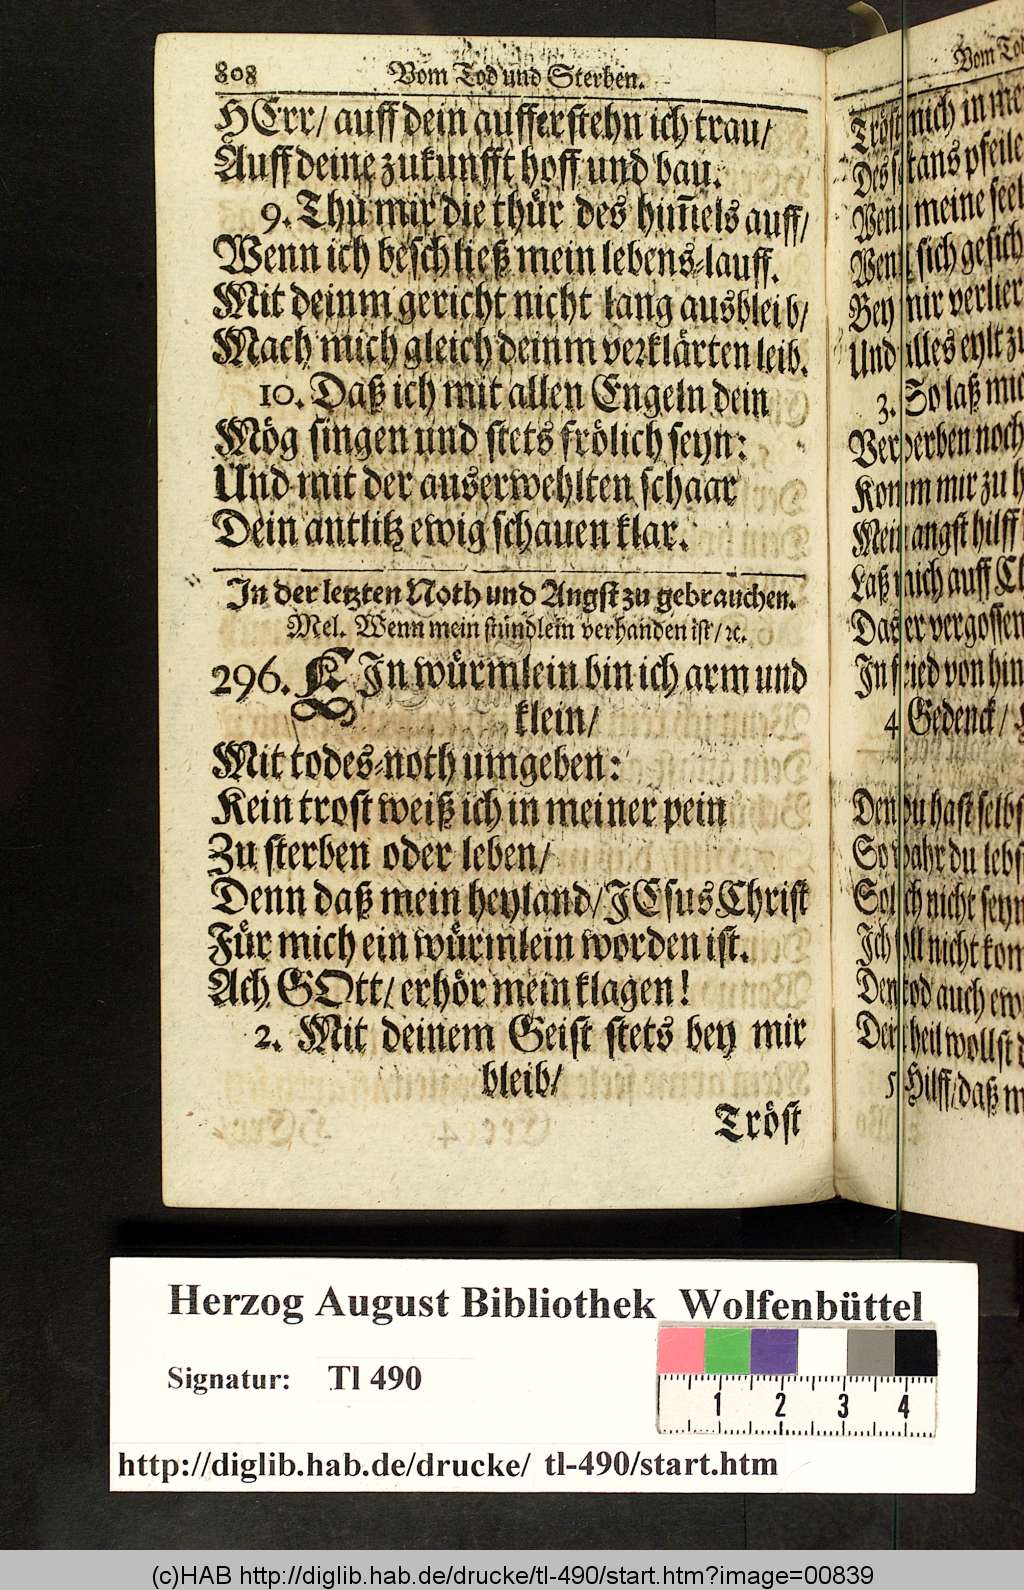 808 Vom Tod und Sterben.
HErr/ auff dein aufferstehn ich trau/
Auff deine zukunfft hoff und bau.
9. Thu mir die thür des him̃els auff/
Wenn ich beschließ mein lebens-lauff.
Mit deinm gericht nicht lang ausbleib/
Mach mich gleich deinm verklärten leib.
10. Daß ich mit allen Engeln dein
Mög singen und stets frölich seyn:
Und mit der auserwehlten schaar
Dein antlitz ewig schauen klar.
In der letzten Noth und Angst zu gebrauchen.
Mel. Wenn mein stündlein verhanden ist/ ꝛc.
296. KIn würmlein bin ich arm und
klein/
Mit todes-noth umgeben:
Kein trost weiß ich in meiner pein
Zu sterben oder leben/
Denn daß mein heyland/ JEsus Christ
Für mich ein würmlein worden ist.
Ach GOtt/ erhör mein klagen!
2. Mit deinem Geist stets bey mir
bleib/
Tröst
Vom
Tröst mich in
Des satans pfeile
Wenn meine seel
Wenn sich
Bey mir
Und alles eylt zu
3. So laß
Verderben noch
Komm mir zu
Mein angst hilff
Laß mich auff
Das er vergossen
In fried von
4 Gedenck/
Denn du hast selbst
So wahr du lebst
Sol ich nicht seyn
Ich soll nicht
Den tod auch
Dein heil wollst
5 Hilff/ daß
Herzog August Bibliothek Wolfenbüttel
Signatur: Tl 490
1 2 3 4
http://diglib.hab.de/drucke/ tl-490/start.htm
(c)HAB http://diglib.hab.de/drucke/tl-490/start.htm?image=00839